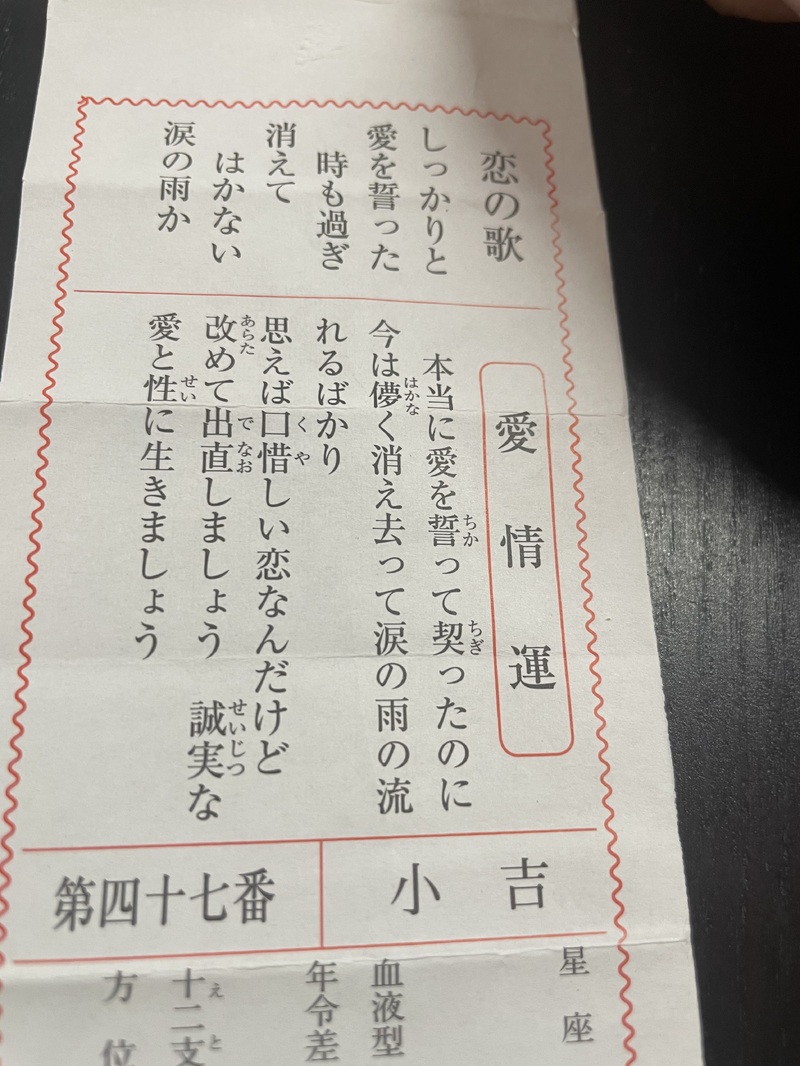 恋の歌
しっかりと
愛を誓った
時も過ぎ
消えて
はかない
涙の雨か
愛情運
本当に愛を誓って契ったのに
今は儚く消え去って涙の雨の流
れるばかり
思えば口惜しい恋なんだけど
改めて出直しましょう 誠実な
愛と性に生きましょう
小吉
第四十七番
星座
血液型
年令差
十二支
方位